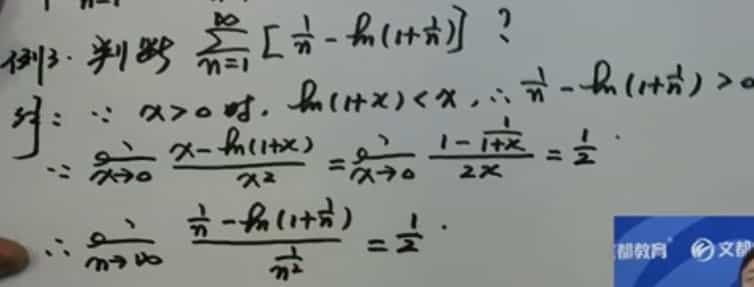 例3. 判断 $\sum_{n=1}^{\infty} [\frac{1}{n} - \ln(1+\frac{1}{n})]$ ?
解: ∵ x>0 时, ln(1+x) < x, ∴ $\frac{1}{n} - \ln(1+\frac{1}{n}) > 0$
∵ $\lim_{x \to 0} \frac{x - \ln(1+x)}{x^2} = \lim_{x \to 0} \frac{1 - \frac{1}{1+x}}{2x} = \frac{1}{2}$.
∴ $\lim_{n \to \infty} \frac{\frac{1}{n} - \ln(1+\frac{1}{n})}{\frac{1}{n^2}} = \frac{1}{2}$.
都教育 文都